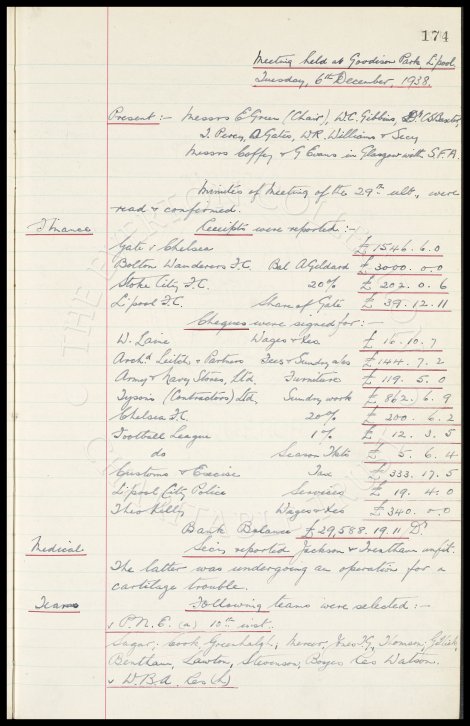 174
Meeting held at Goodison Park, L'pool,
Tuesday, 6th December, 1938.
Present:- Messrs E. Green (Chair), W.C. Gibbins, Dr C.S. Baxter,
T. Percy, A Gates, W.R. Williams & Secy
Messrs Coffey & G Evans in Glasgow with S.F.A.
Minutes of Meeting of the 29th ult, were
read & confirmed.
Finance Receipts were reported:-
Gate v Chelsea £1546.6.0
Bolton Wanderers F.C. Bal A Geldard £3000.0.0
Stoke City F.C. 20% £202.0.6
L'pool F.C. Share of Gate £39.12.11
Cheques were signed for:-
W. Wages &
Archd Leitch, & Partners Fees & Sundry £144.7.2
Army & Navy Stores, Ltd, Furniture £119.5.0
Tysons (Contractors) Ltd, Sundry work £862.6.9
Chelsea F.C. 20% £300.6.2
Football League 1% £12.3.5
do Season Tkts £5.6.4
Customs & Excise Tax £333.17.5
L'pool City Police Services £19.4.0
Theo Kelly Wages & £340.0.0
Bank Balance £29,588.19.11 Dr
Medical Secy, reported Jackson & Trentham unfit.
The latter was undergoing an operation for a
cartilage trouble.
Teams Following teams were selected:-
v P.N.E. (a) 10th inst.
Sagar, Cook, Greenhalgh; Mercer, Jones T.G., Thomson; Gillick,
Bentham, Lawton, Stevenson, Boyes Res Watson.
v W.B.A. Res (h)